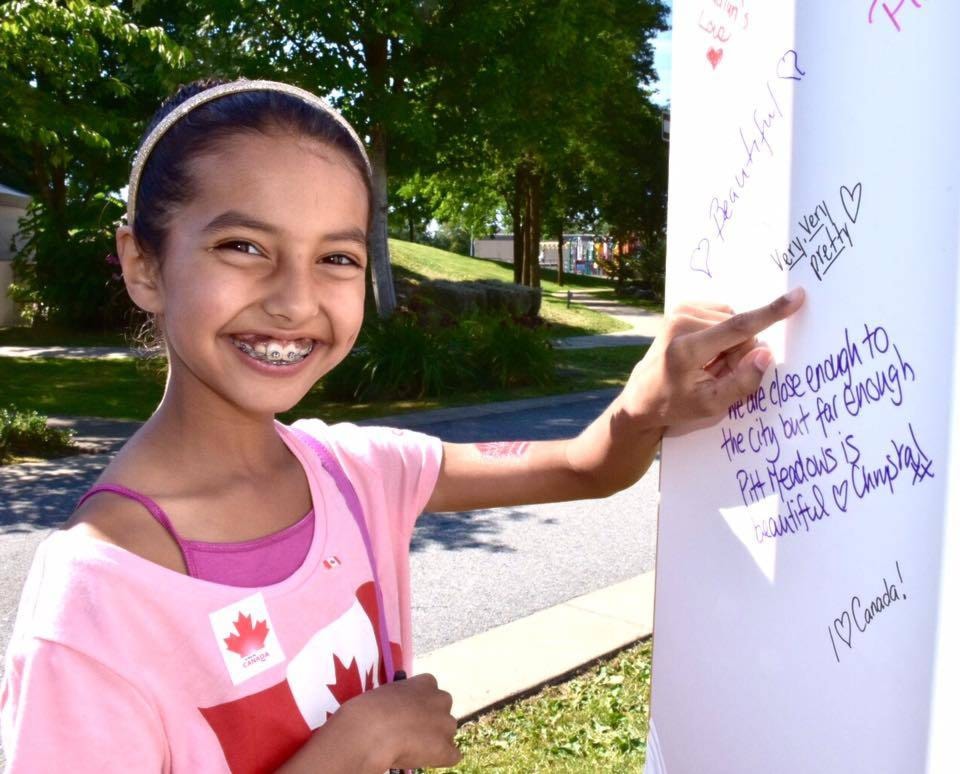 Love
Beautiful
Very, Very
pretty
We are close enough to
the city but far enough
Pitt Meadows is
beautiful
I ♡ Canada!
CANADA